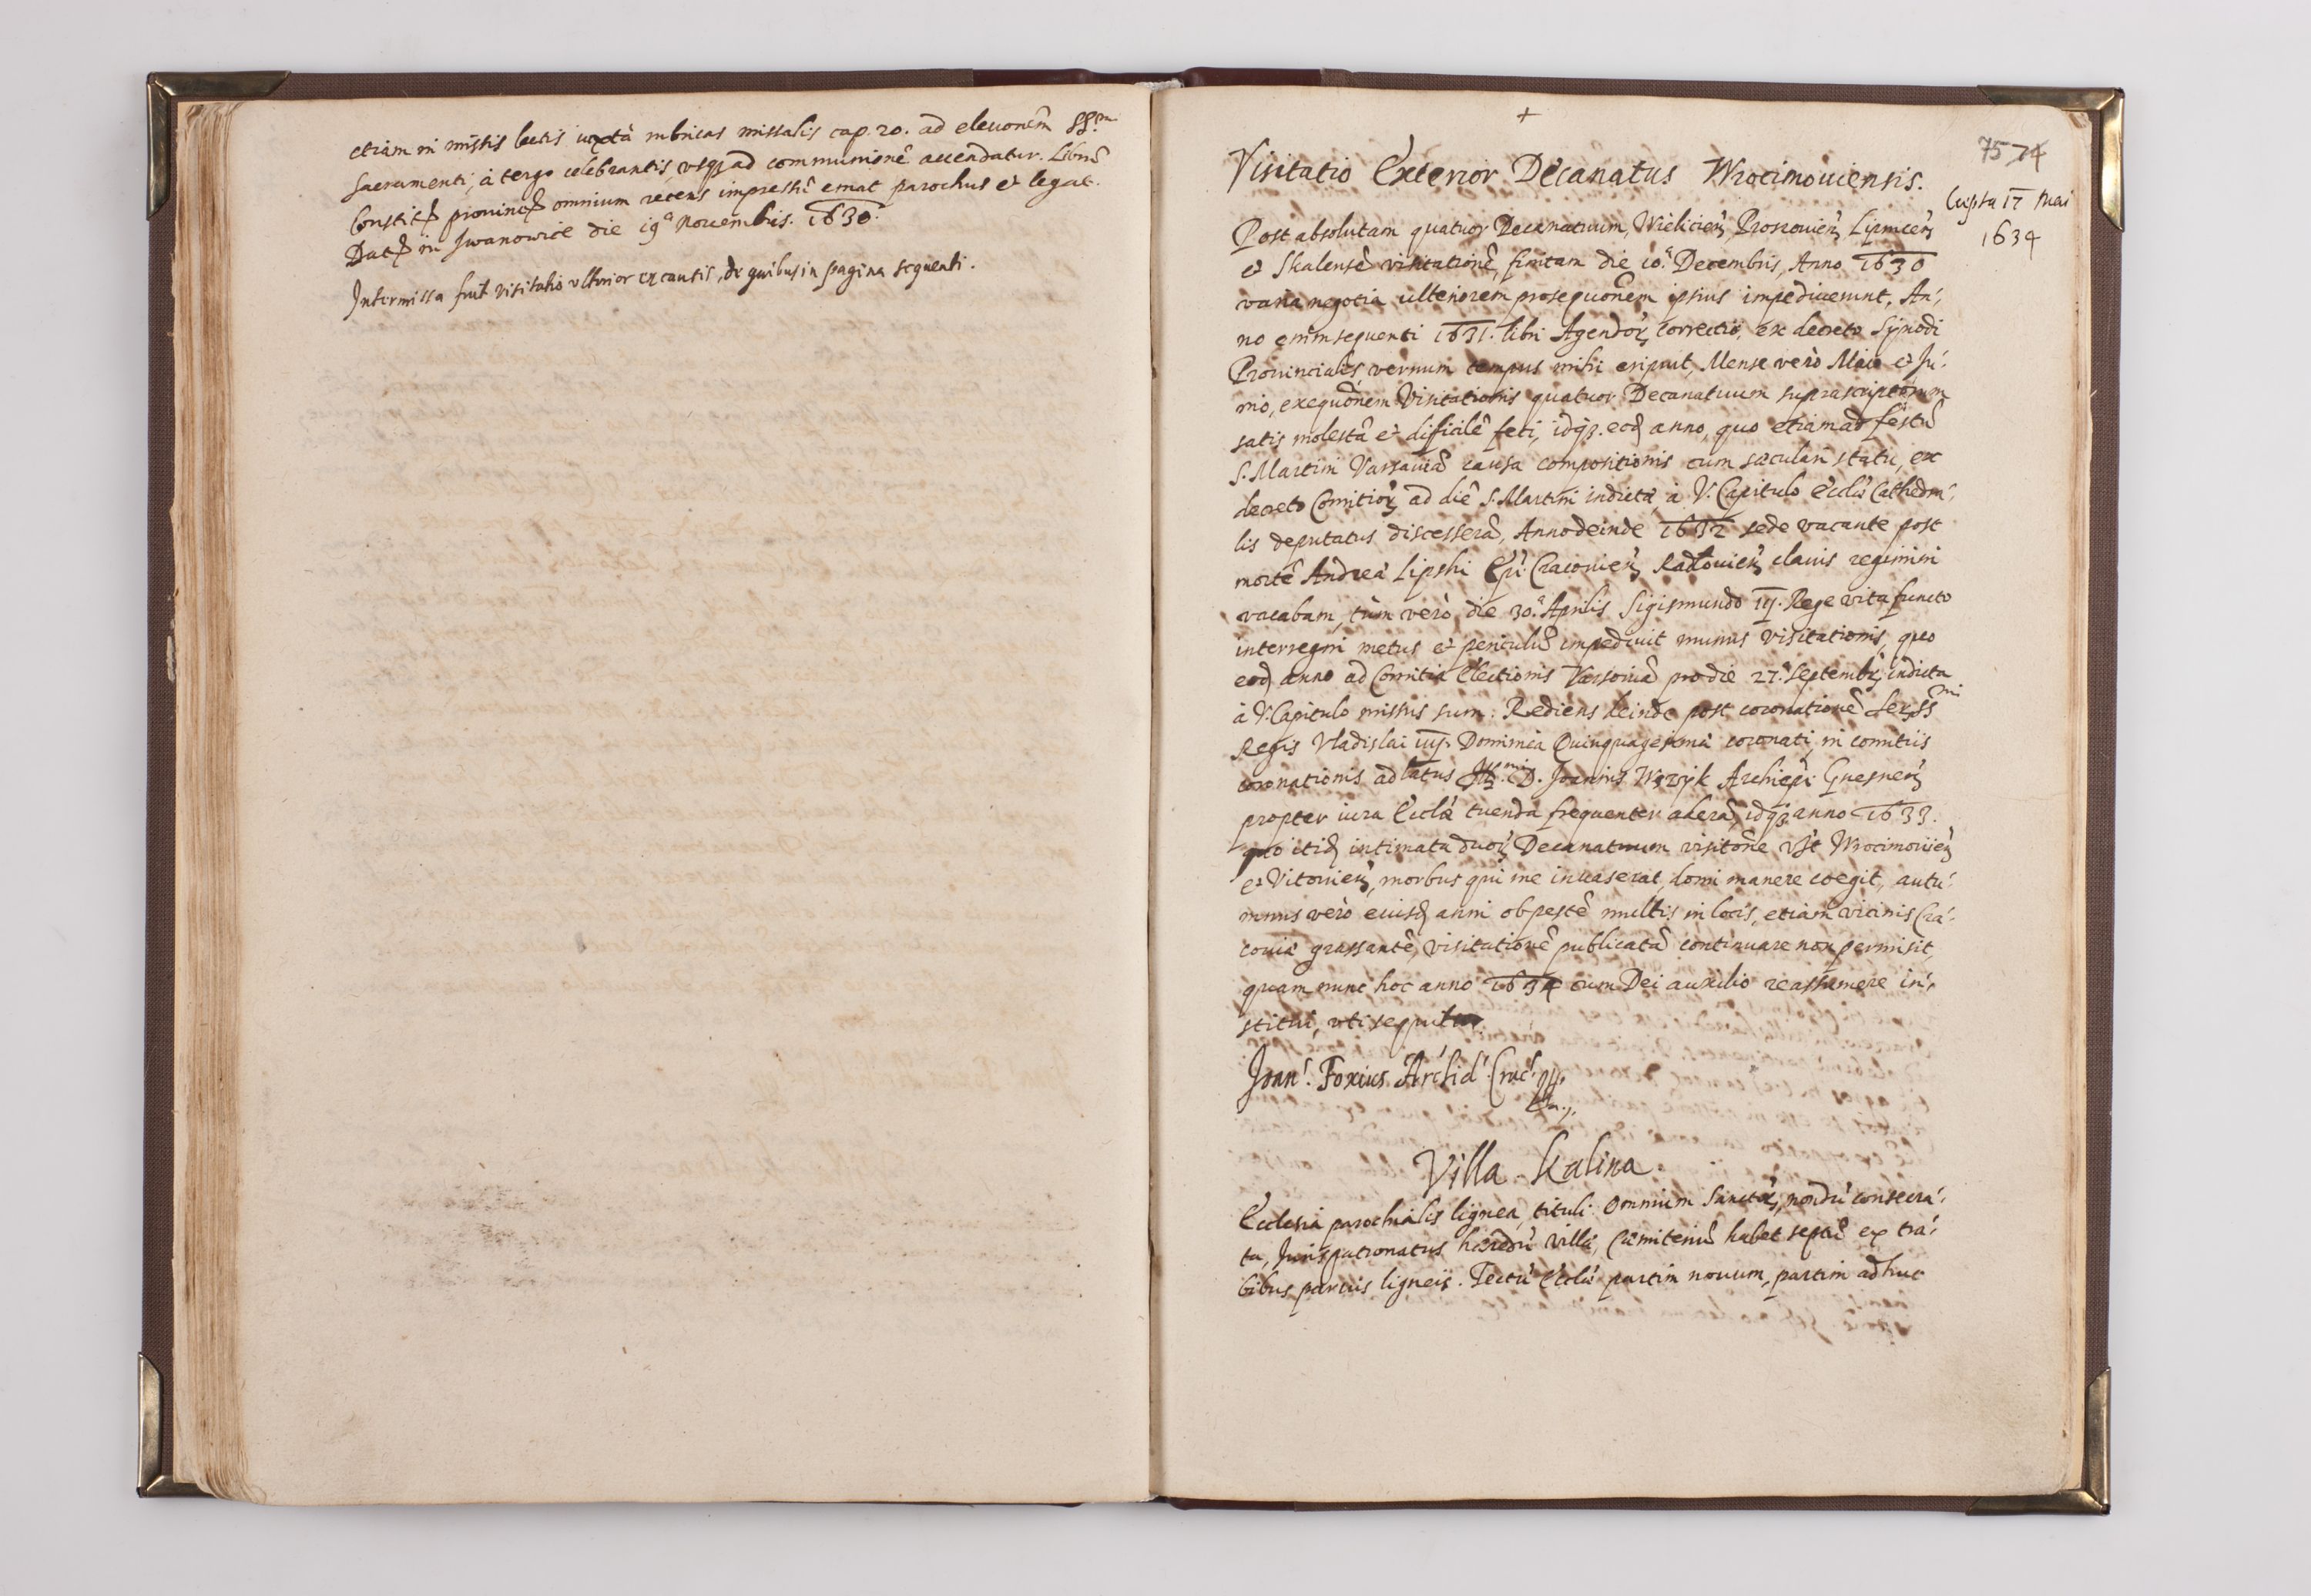 etiam in missis lectis iuxtà rubricas missalis cap. 20. ad eleuonẽm SS.mi
Sacramenti, à tergo celebrantis, vsq3 ad communionẽ accendatur. Librũ
Constit. prouinc. omnium recens impressũ emat parochus et legat.
Dat. in Jwanowice die 19ª Nouembris. 1630.
Intermissa fuit visitatio vlterior ex causis, de quibus in pagina sequenti.
+
75 74
Visitatio Exterior Decanatus Wrocimouiensis.
Cæpta 17 Maii
1634
Post absolutam quatuor Decanatuum, Wielicień, Prossouień, Lipnicień
et Skalensẽ visitationẽ, finitam die 10.ª Decembris, Anno 1630
varia negotia ulteriorem prosequonem ipsius impediuerunt, An,
no enim sequenti 1631. libri Agendor, correctio, ex decreto Synodi
Prouincialis, vernum tempus mihi eripuit, Mense verò Maio et Ju,
nio, exequonem Visitationis quatuor Decanatuum suprascriptorum
satis molestã et dificilẽ feci, idq3. eod anno, quo etiam ad festũ
S. Martini Varsauiã causa compositionis cum sæculari statu, ex
decreto Comitior, ad diẽ S. Martini indicta, à V. Capitulo Eccliæ Cathedra,
lis deputatus discesserã, Anno deinde 1632 sede vacante post
mortẽ Andreæ Lipski Epi Cracouień, Radłouień, clauis regimini
vacabam, tùm verò die 30.ª Aprilis Sigismundo iij. Rege vita functo
interregni metus et periculũ impediuit munus visitationis, quo
eod anno ad Comitia Electionis Varsouiã pro die 27.ª Septembr, indicta
à V. Capitulo missus sum. Rediens deinde post coronationẽ Serss.mi
Regis Vladislai iiij. Dominica Quinquagesima coronati, in comitiis
coronationis ad latus Illmi D. Joannis Wężyk Archiepi Gnesneń
propter iura Eccliæ tuenda frequenter aderã, idq3 anno 1633.
quo itid intimata duor, Decanatuum visitone, vst Wrocimouień
et Vitouień, morbus qui me inuaserat, domi manere coegit, autu,
mnus verò eiusd anni ob pestẽ multis in locis, etiam vicinis Cra,
couiæ grassantẽ, visitationẽ publicatã continuare non permisit,
quam nunc hoc anno 1634 cum Dei auxilio reassumere in,
stitui, vti sequitur
Joan. Foxius Archid. Crac.
Villa Kalina
Ecclesia parochialis lignea, tituli Omnium Sanctor, nondũ consecra,
ta, Jurispatronatus hæredũ villæ, Cæmiteriũ habet septũ ex tra,
bibus paruis ligneis. Tectũ Eccliæ partim nouum, partim adhuc